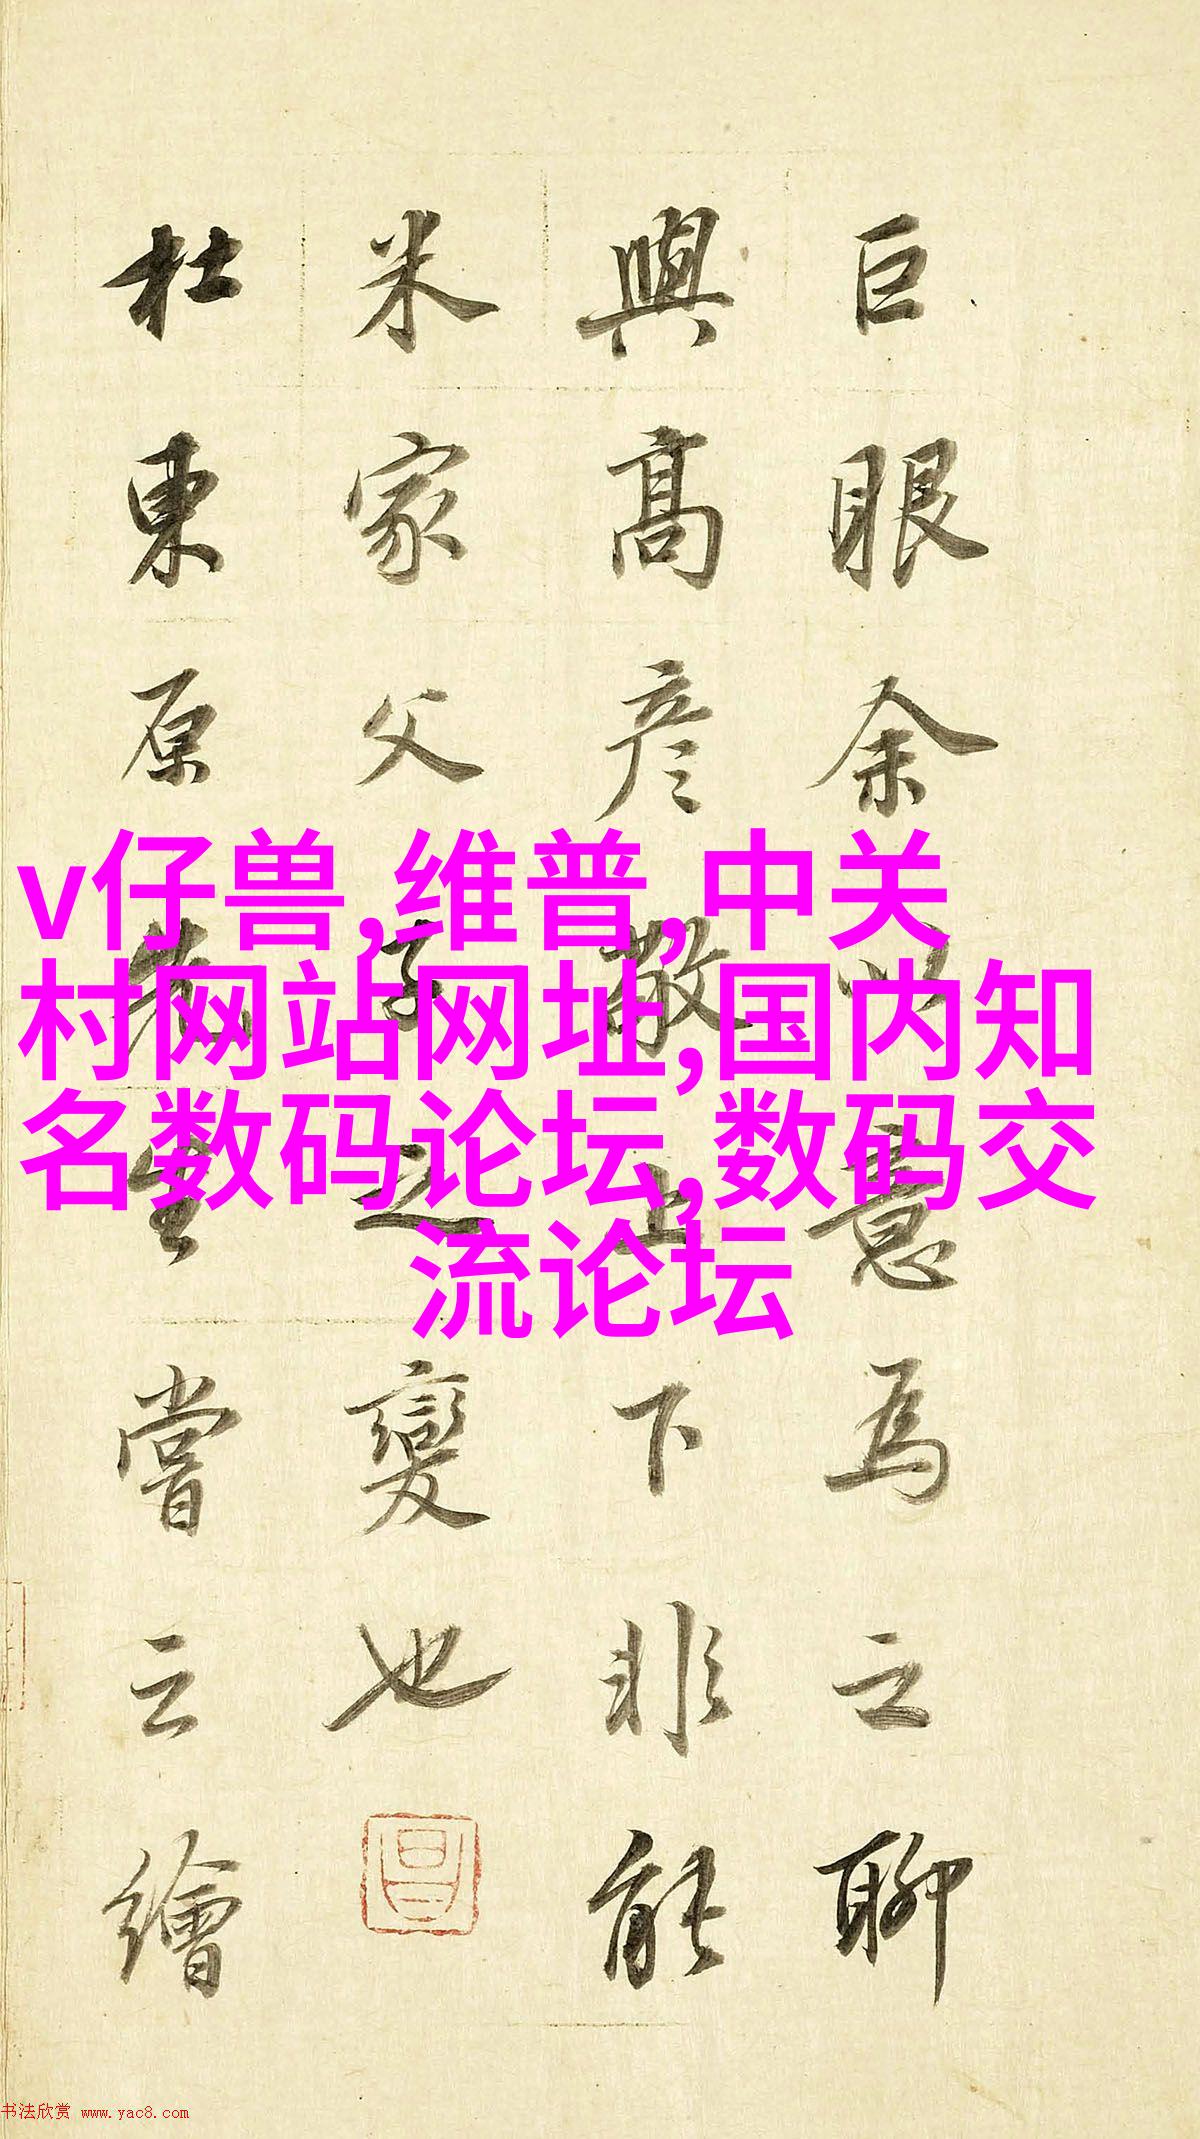 巨眼余以意為之聊
與高彥敬上下非能
米家父子之變也
杜東原先生嘗云繪
v仔兽,维普,中关
村网站网址,国内知
名数码论坛,数码交
流论坛
昌
书法欣赏 www.yac8.com